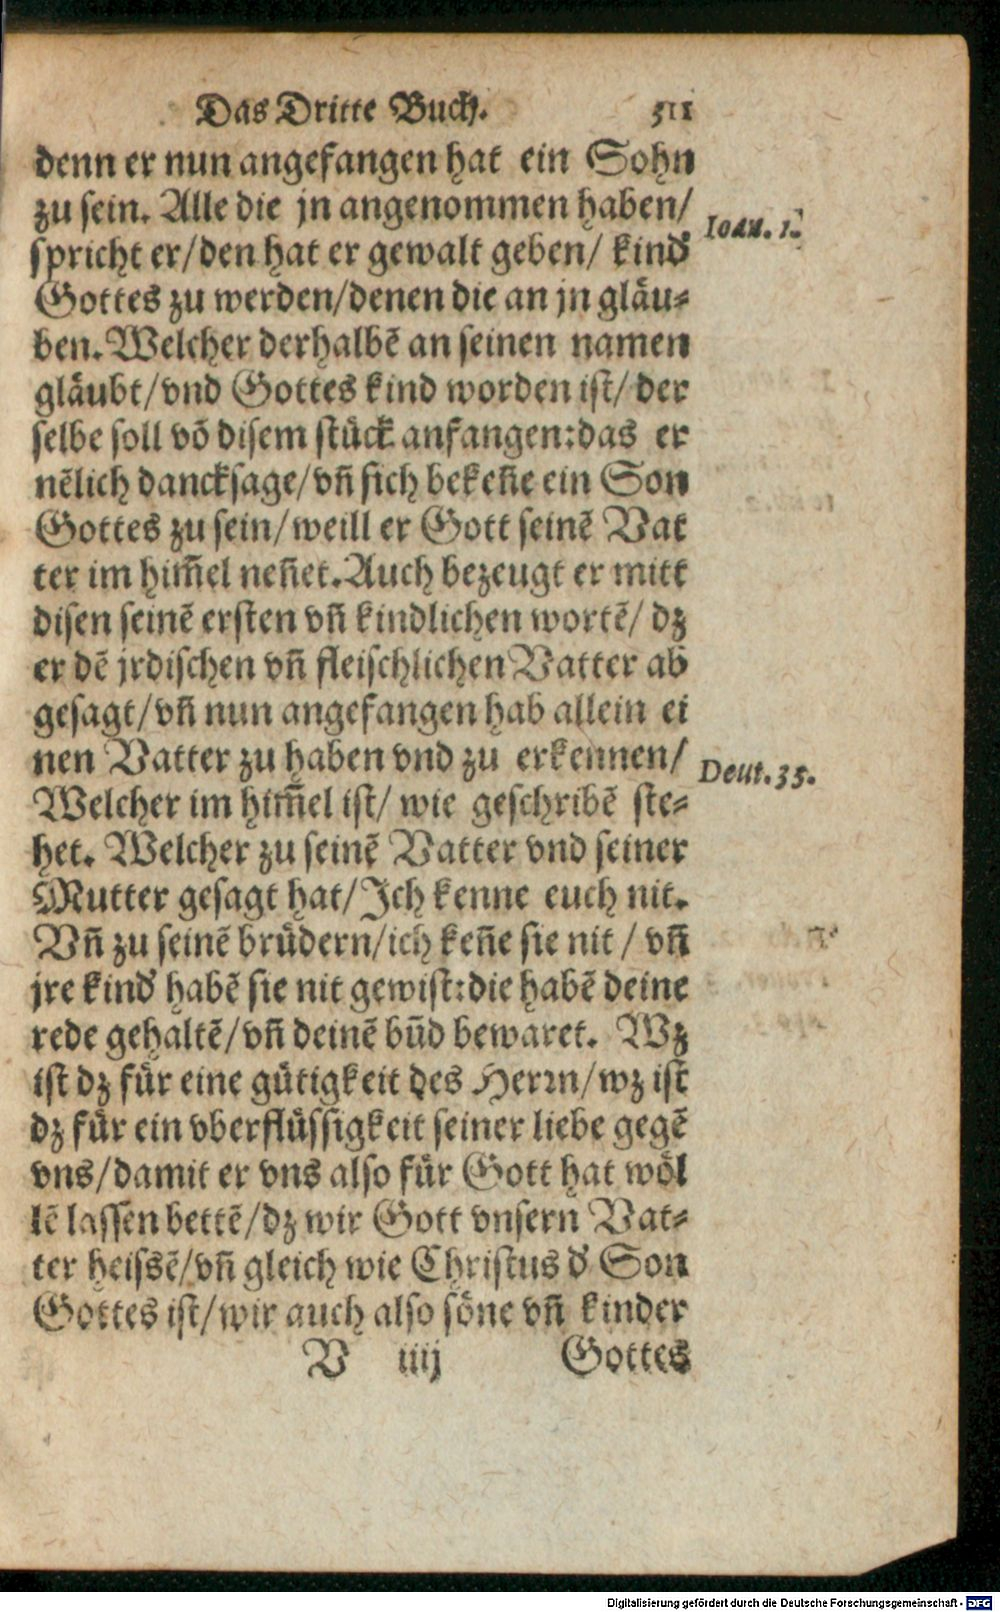 Das Dritte Buch. 511
denn er nun angefangen hat ein Sohn
zu sein. Alle die jn angenommen haben/
Ioan. 1.
spricht er/den hat er gewalt geben/ kind
Gottes zu werden/denen die an jn gläu⸗
ben. Welcher derhalbē an seinen namen
gläubt/vnd Gottes kind worden ist/ der
selbe soll vō disem stück anfangen:das er
nēlich dancksage/vn̄ sich beken̄e ein Son
Gottes zu sein/weill er Gott seinē Vat
ter im him̄el nen̄et. Auch bezeugt er mitt
disen seinē ersten vn̄ kindlichen wortē/ dz
er dē jrdischen vn̄ fleischlichen Vatter ab
gesagt/vn̄ nun angefangen hab allein ei
nen Vatter zu haben vnd zu erkennen/
Deut. 35.
Welcher im him̄el ist/ wie geschribē ste⸗
het. Welcher zu seinē Vatter vnd seiner
Mutter gesagt hat/Ich kenne euch nit.
Vn̄ zu seinē brüdern/ich ken̄e sie nit / vn̄
jre kind habē sie nit gewist:die habē deine
rede gehaltē/vn̄ deinē būd bewaret. Wz
ist dz für eine gütigkeit des Herrn/wz ist
dz für ein vberflüssigkeit seiner liebe gegē
vns/damit er vns also für Gott hat wöl
lē lassen bettē/dz wir Gott vnsern Vat⸗
ter heissē/vn̄ gleich wie Christus d' Son
Gottes ist/wir auch also söne vn̄ kinder
V iiij Gottes
Digitalisierung gefördert durch die Deutsche Forschungsgemeinschaft - DFG